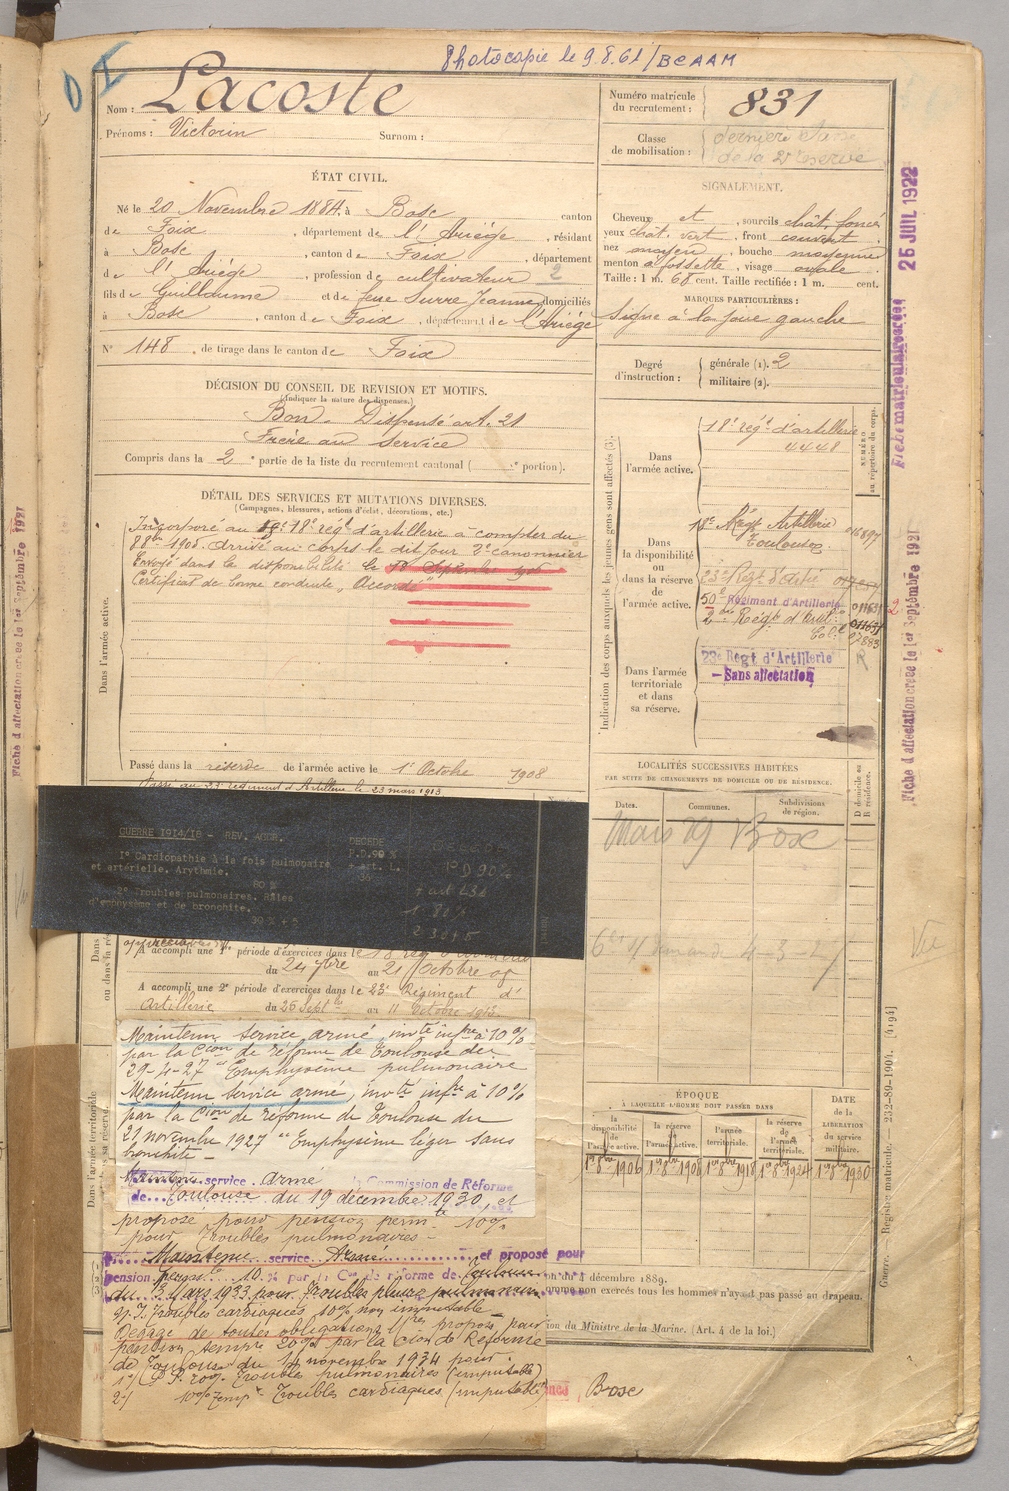 Photocopie le 9.8.61/BCAAM
Nom : Lacoste
Prénoms : Victorin Surnom :
Numéro matricule
du recrutement : 831
Classe
de mobilisation : dernière classe
de la 2e réserve
ÉTAT CIVIL.
Né le 20 Novembre 1884, à Bosc canton
de Foix, département de l'Ariège, résidant
à Bosc, canton de Foix, département
de l'Ariège, profession de cultivateur 2
fils de Guillaume et de feue Surre Jeanne, domiciliés
à Bosc, canton de Foix, département de l'Ariège
N° 148 de tirage dans le canton de Foix
SIGNALEMENT.
Cheveux et, sourcils chât. foncé
yeux chat. vert, front couvert
nez moyen, bouche moyenne
menton à fossette, visage ovale.
Taille : 1 m. 68 cent. Taille rectifiée : 1 m. cent.
MARQUES PARTICULIÈRES :
Signe à la joue gauche
Degré
d'instruction : générale (1). 2
militaire (2).
DÉCISION DU CONSEIL DE REVISION ET MOTIFS.
(Indiquer la nature des dispenses.)
Bon - Dispensé art. 21
Frère au service
Compris dans la 2e partie de la liste du recrutement cantonal ( e portion).
DÉTAIL DES SERVICES ET MUTATIONS DIVERSES.
(Campagnes, blessures, actions d'éclat, décorations, etc.)
Dans l'armée active.
Incorporé au 18e régt d'artillerie à compter du
1905. Arrivé au corps le dit jour 2e canonnier
Envoyé dans la disponibilité le 18 Septembre 1906
Certificat de bonne conduite "Accordé"
Passé dans la réserve de l'armée active le 1er Octobre 1908
Passé au 23e régiment d'Artillerie le 23 mars 1913
Indication des corps auxquels les jeunes gens sont affectés (3).
NUMÉRO
au répertoire du corps.
Dans
l'armée active.
18e régt d'artillerie
4448
Dans
la disponibilité
ou
dans la réserve
de
l'armée active.
18e Régt Artillerie
Toulouse
016897
23e Régt d'Artie
50e Régiment d'Artillerie
01163
2me Régt d'Artie
Colle
07883
Dans l'armée
territoriale
et dans
sa réserve.
23e Régt d'Artillerie
— Sans affectation
R
25 JUIL 1922
Fiche matriculaire créée
Fiche d'affectation créée le 1er Septembre 1921
Fiche d'affectation créée le 1er Septembre 1921
LOCALITÉS SUCCESSIVES HABITÉES
PAR SUITE DE CHANGEMENTS DE DOMICILE OU DE RÉSIDENCE.
Dates. Communes. Subdivisions
de région.
D domicile ou
R résidence.
Mars 29 Box
4-3-27
Vu
GUERRE 1914/18 - REV. AGGR.
1° Cardiopathie à la fois pulmonaire
et artérielle. Arythmie.
80 %
2° Troubles pulmonaires. Râles
d'emphysème et de bronchite.
30 % + 5
DECEDE
P.D. 90 %
+ art. L.
36
A accompli une 1re période d'exercices dans le 18e rég d'artillerie
du 24 7bre au 21 Octobre 09
A accompli une 2e période d'exercices dans le 23e Régiment d'
Artillerie du 26 Septbre au 11 Octobre 1913
Maintenu service armé, invté infre à 10%
par la Cion de réforme de Toulouse du
29-4-27 "Emphysème pulmonaire
Maintenu service armé, invté infre à 10%
par la Cion de réforme de Toulouse du
21 novembre 1927 "Emphysème léger sans
bronchite -
Maintenu service armé Commission de Réforme
de Toulouse du 19 décembre 1930, et
proposé pour pension permte 10%
pour troubles pulmonaires -
Maintenu service Armé et proposé pour
pension 10 % par la Cion de réforme de Toulouse
du 13 Mars 1933 pour Troubles
Troubles cardiaques 10% non imputable -
Dégagé de toutes obligations Mres proposé pour
pension tempre 20% par la Cion de Réforme
de Toulouse du 14 novembre 1934 pour :
1°/ P.P. 20% Troubles pulmonaires (imputable)
2°/ 10% temp. Troubles cardiaques (imputable)
Bosc
ÉPOQUE
À LAQUELLE L'HOMME DOIT PASSER DANS
la
disponibilité
de
l'armée active.
la réserve
de
l'armée active.
l'armée
territoriale.
la réserve
de
l'armée
territoriale.
DATE
de la
LIBÉRATION
du service
militaire.
1er 8bre 1906 1er 8bre 1908 1er 8bre 1918 1er 8bre 1924 1er 8bre 1930
on du 4 décembre 1889.
omme non exercés tous les hommes n'ayant pas passé au drapeau.
ion du Ministre de la Marine. (Art. 4 de la loi.)
Guerre. — Registre matricule. — 232-89-1904. [4194]